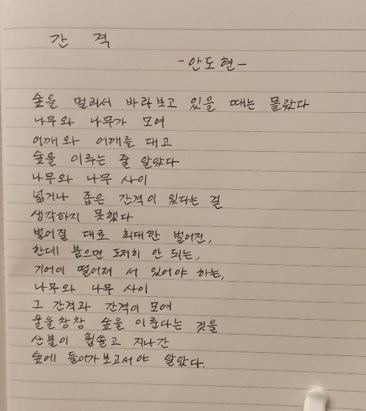 간격
-안도현-
숲을 멀리서 바라보고 있을 때는 몰랐다
나무와 나무가 모여
어깨와 어깨를 대고
숲을 이루는 줄 알았다
나무와 나무 사이
넓거나 좁은 간격이 있다는 걸
생각하지 못했다
벌어질 대로 최대한 벌어진,
한데 붙으면 도저히 안 되는,
기어이 떨어져 서 있어야 하는,
나무와 나무 사이
그 간격과 간격이 모여
울울창창 숲을 이룬다는 것을
산불이 휩쓸고 지나간
숲에 들어가보고서야 알았다.